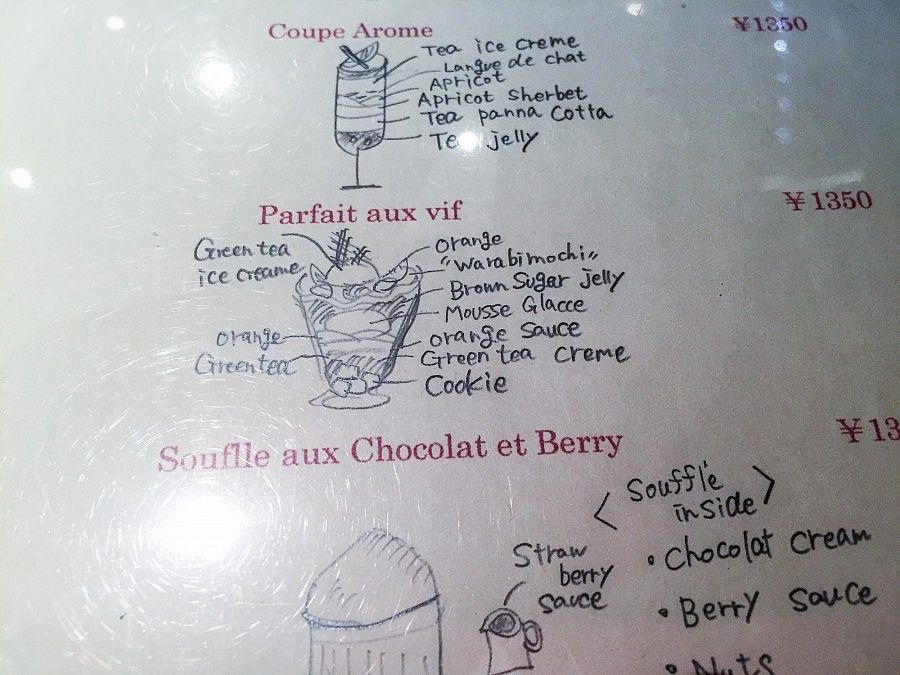 Coupe Arome ¥1350
Tea ice creme
Langue de chat
Apricot
Apricot sherbet
Tea panna cotta
Tea jelly
Parfait aux vif ¥1350
Green tea
ice creame
orange
Green tea
orange
"warabimochi"
Brown Suger jelly
Mousse Glacce
orange sauce
Green tea creme
Cookie
Souflle aux Chocolat et Berry ¥13
<Soufflé
inside>
Straw
berry
sauce
• Chocolat cream
• Berry sauce
• Nuts